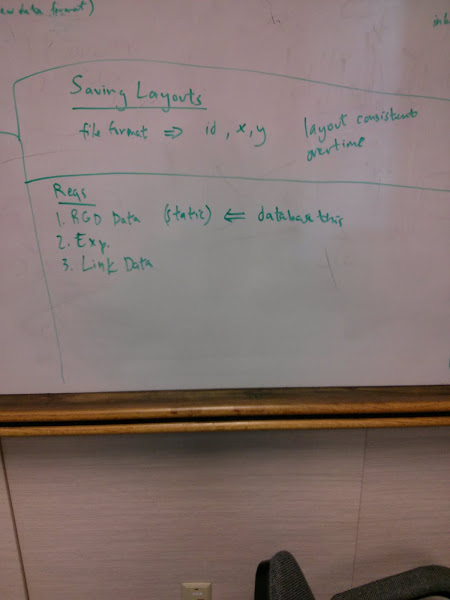 ew data format)
Saving Layouts
file format ⇒ id, x, y
layout consistent
overtime
Reqs
1. RGD Data (static) ⇐ database this
2. Exp.
3. Link Data